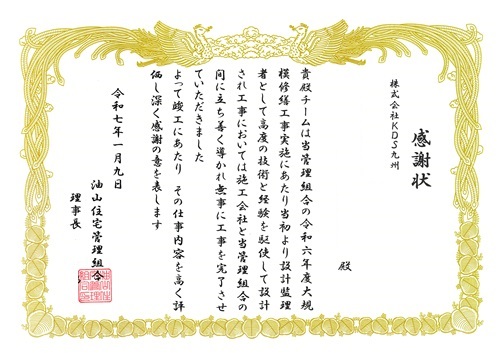 感謝状
株式会社KDS九州
殿
貴殿チームは当管理組合の令和六年度大規
模修繕工事実施にあたり当初より設計監理
者として高度の技術と経験を駆使して設計
され工事においては施工会社と当管理組合の
間に立ち善く導かれ無事に工事を完了させ
ていただきました
よって竣工にあたり その仕事内容を高く評
価し深く感謝の意を表します
令和七年一月九日
油山住宅管理組合
理事長